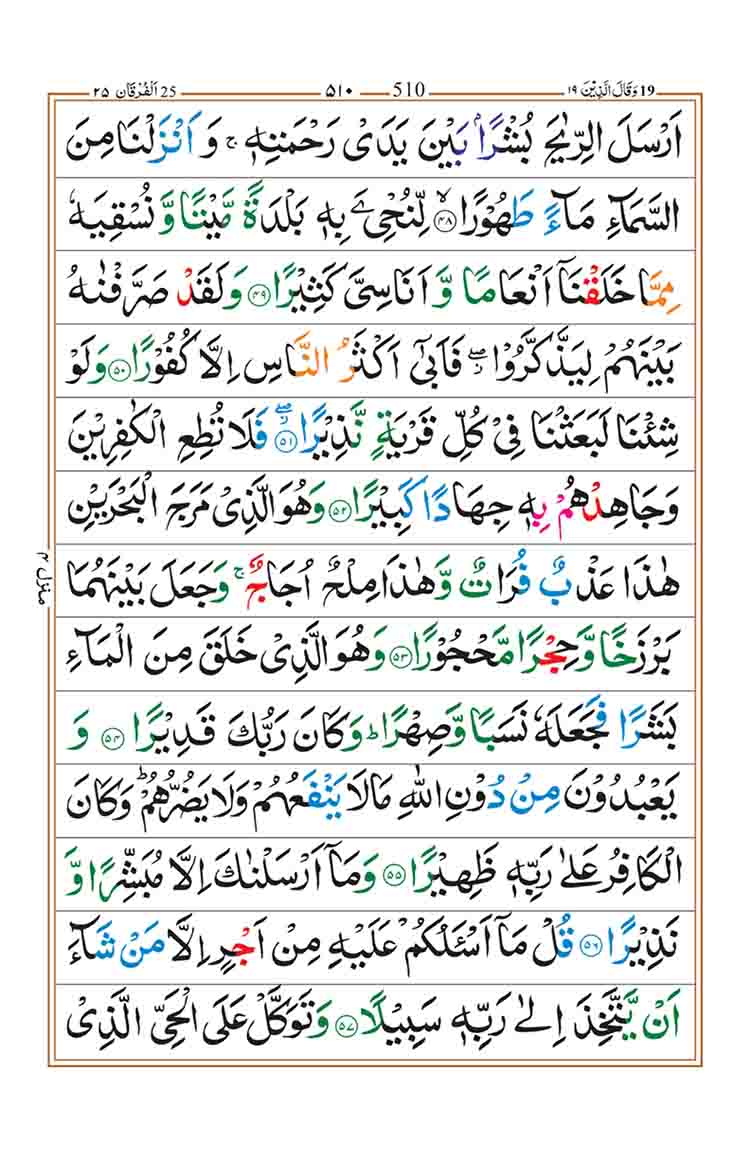 19 وَقَالَ الَّذِيْنَ ١٩ 510 ٥١٠ 25 اَلْفُرْقَان ٢٥
اَرْسَلَ الرِّيٰحَ بُشْرًاۢ بَيْنَ يَدَىْ رَحْمَتِهٖ ۚ وَ اَنْزَلْنَا مِنَ
السَّمَآءِ مَآءً طَهُوْرًا ۙ‏﴿۴۸﴾ لِّنُحْیِۦَ بِهٖ بَلْدَةً مَّيْتًا وَّ نُسْقِيَهٗ
مِمَّا خَلَقْنَاۤ اَنْعَامًا وَّ اَنَاسِىَّ كَثِيْرًا ﴿۴۹﴾ وَلَقَدْ صَرَّفْنٰهُ
بَيْنَهُمْ لِيَذَّكَّرُوْا ۖ فَاَبٰٓى اَكْثَرُ النَّاسِ اِلَّا كُفُوْرًا ﴿۵۰﴾ وَلَوْ
شِئْنَا لَبَعَثْنَا فِىْ كُلِّ قَرْيَةٍ نَّذِيْرًا ۖ ﴿۵۱﴾ فَلَا تُطِعِ الْكٰفِرِيْنَ
وَجَاهِدْهُمْ بِهٖ جِهَادًا كَبِيْرًا ﴿۵۲﴾ وَهُوَ الَّذِىْ مَرَجَ الْبَحْرَيْنِ
هٰذَا عَذْبٌ فُرَاتٌ وَّهٰذَا مِلْحٌ اُجَاجٌ ۚ وَجَعَلَ بَيْنَهُمَا
بَرْزَخًا وَّحِجْرًا مَّحْجُوْرًا ﴿۵۳﴾ وَهُوَ الَّذِىْ خَلَقَ مِنَ الْمَآءِ
بَشَرًا فَجَعَلَهٗ نَسَبًا وَّصِهْرًا ؕ وَكَانَ رَبُّكَ قَدِيْرًا ﴿۵۴﴾ وَ
يَعْبُدُوْنَ مِنْ دُوْنِ اللّٰهِ مَا لَا يَنْفَعُهُمْ وَلَا يَضُرُّهُمْ ؕ وَكَانَ
الْكَافِرُ عَلٰى رَبِّهٖ ظَهِيْرًا ﴿۵۵﴾ وَمَاۤ اَرْسَلْنٰكَ اِلَّا مُبَشِّرًا وَّ
نَذِيْرًا ﴿۵۶﴾ قُلْ مَاۤ اَسْـَٔـلُكُمْ عَلَيْهِ مِنْ اَجْرٍ اِلَّا مَنْ شَآءَ
اَنْ يَّتَّخِذَ اِلٰى رَبِّهٖ سَبِيْلًا ﴿۵۷﴾ وَتَوَكَّلْ عَلَى الْحَىِّ الَّذِىْ
منزل ۴